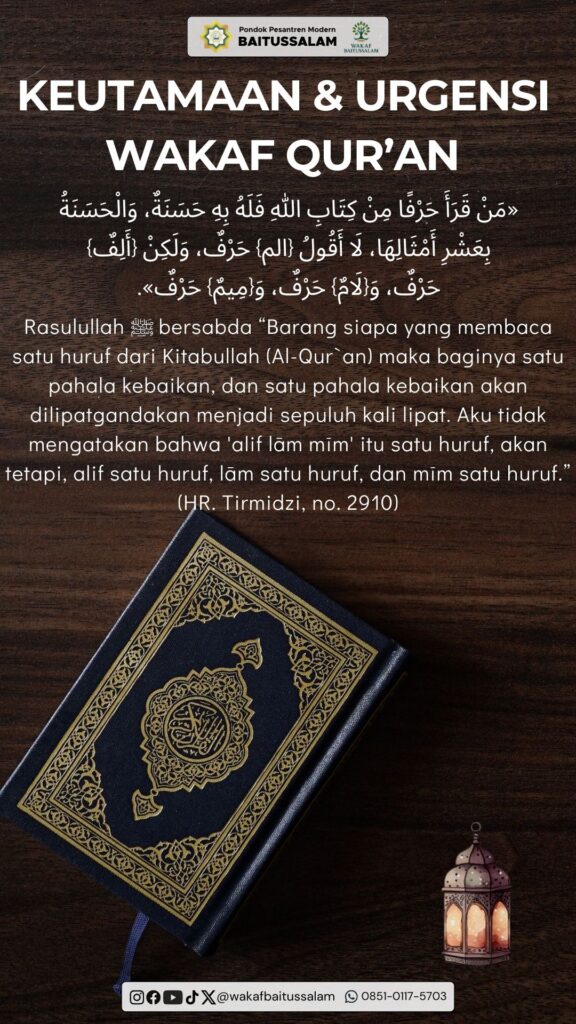 Pondok Pesantren Modern
BAITUSSALAM
WAKAF
BAITUSSALAM
KEUTAMAAN & URGENSI
WAKAF QUR’AN
«مَنْ قَرَأَ حَرْفًا مِنْ كِتَابِ اللهِ فَلَهُ بِهِ حَسَنَةٌ، وَالْحَسَنَةُ
بِعَشْرِ أَمْثَالِهَا، لَا أَقُولُ {الم} حَرْفٌ، وَلَكِنْ {أَلِفٌ}
حَرْفٌ، وَ{لَامٌ} حَرْفٌ، وَ{مِيمٌ} حَرْفٌ».
Rasulullah ﷺ bersabda “Barang siapa yang membaca
satu huruf dari Kitabullah (Al-Qur`an) maka baginya satu
pahala kebaikan, dan satu pahala kebaikan akan
dilipatgandakan menjadi sepuluh kali lipat. Aku tidak
mengatakan bahwa 'alif lām mīm' itu satu huruf, akan
tetapi, alif satu huruf, lām satu huruf, dan mīm satu huruf.”
(HR. Tirmidzi, no. 2910)
@wakafbaitussalam 0851-0117-5703